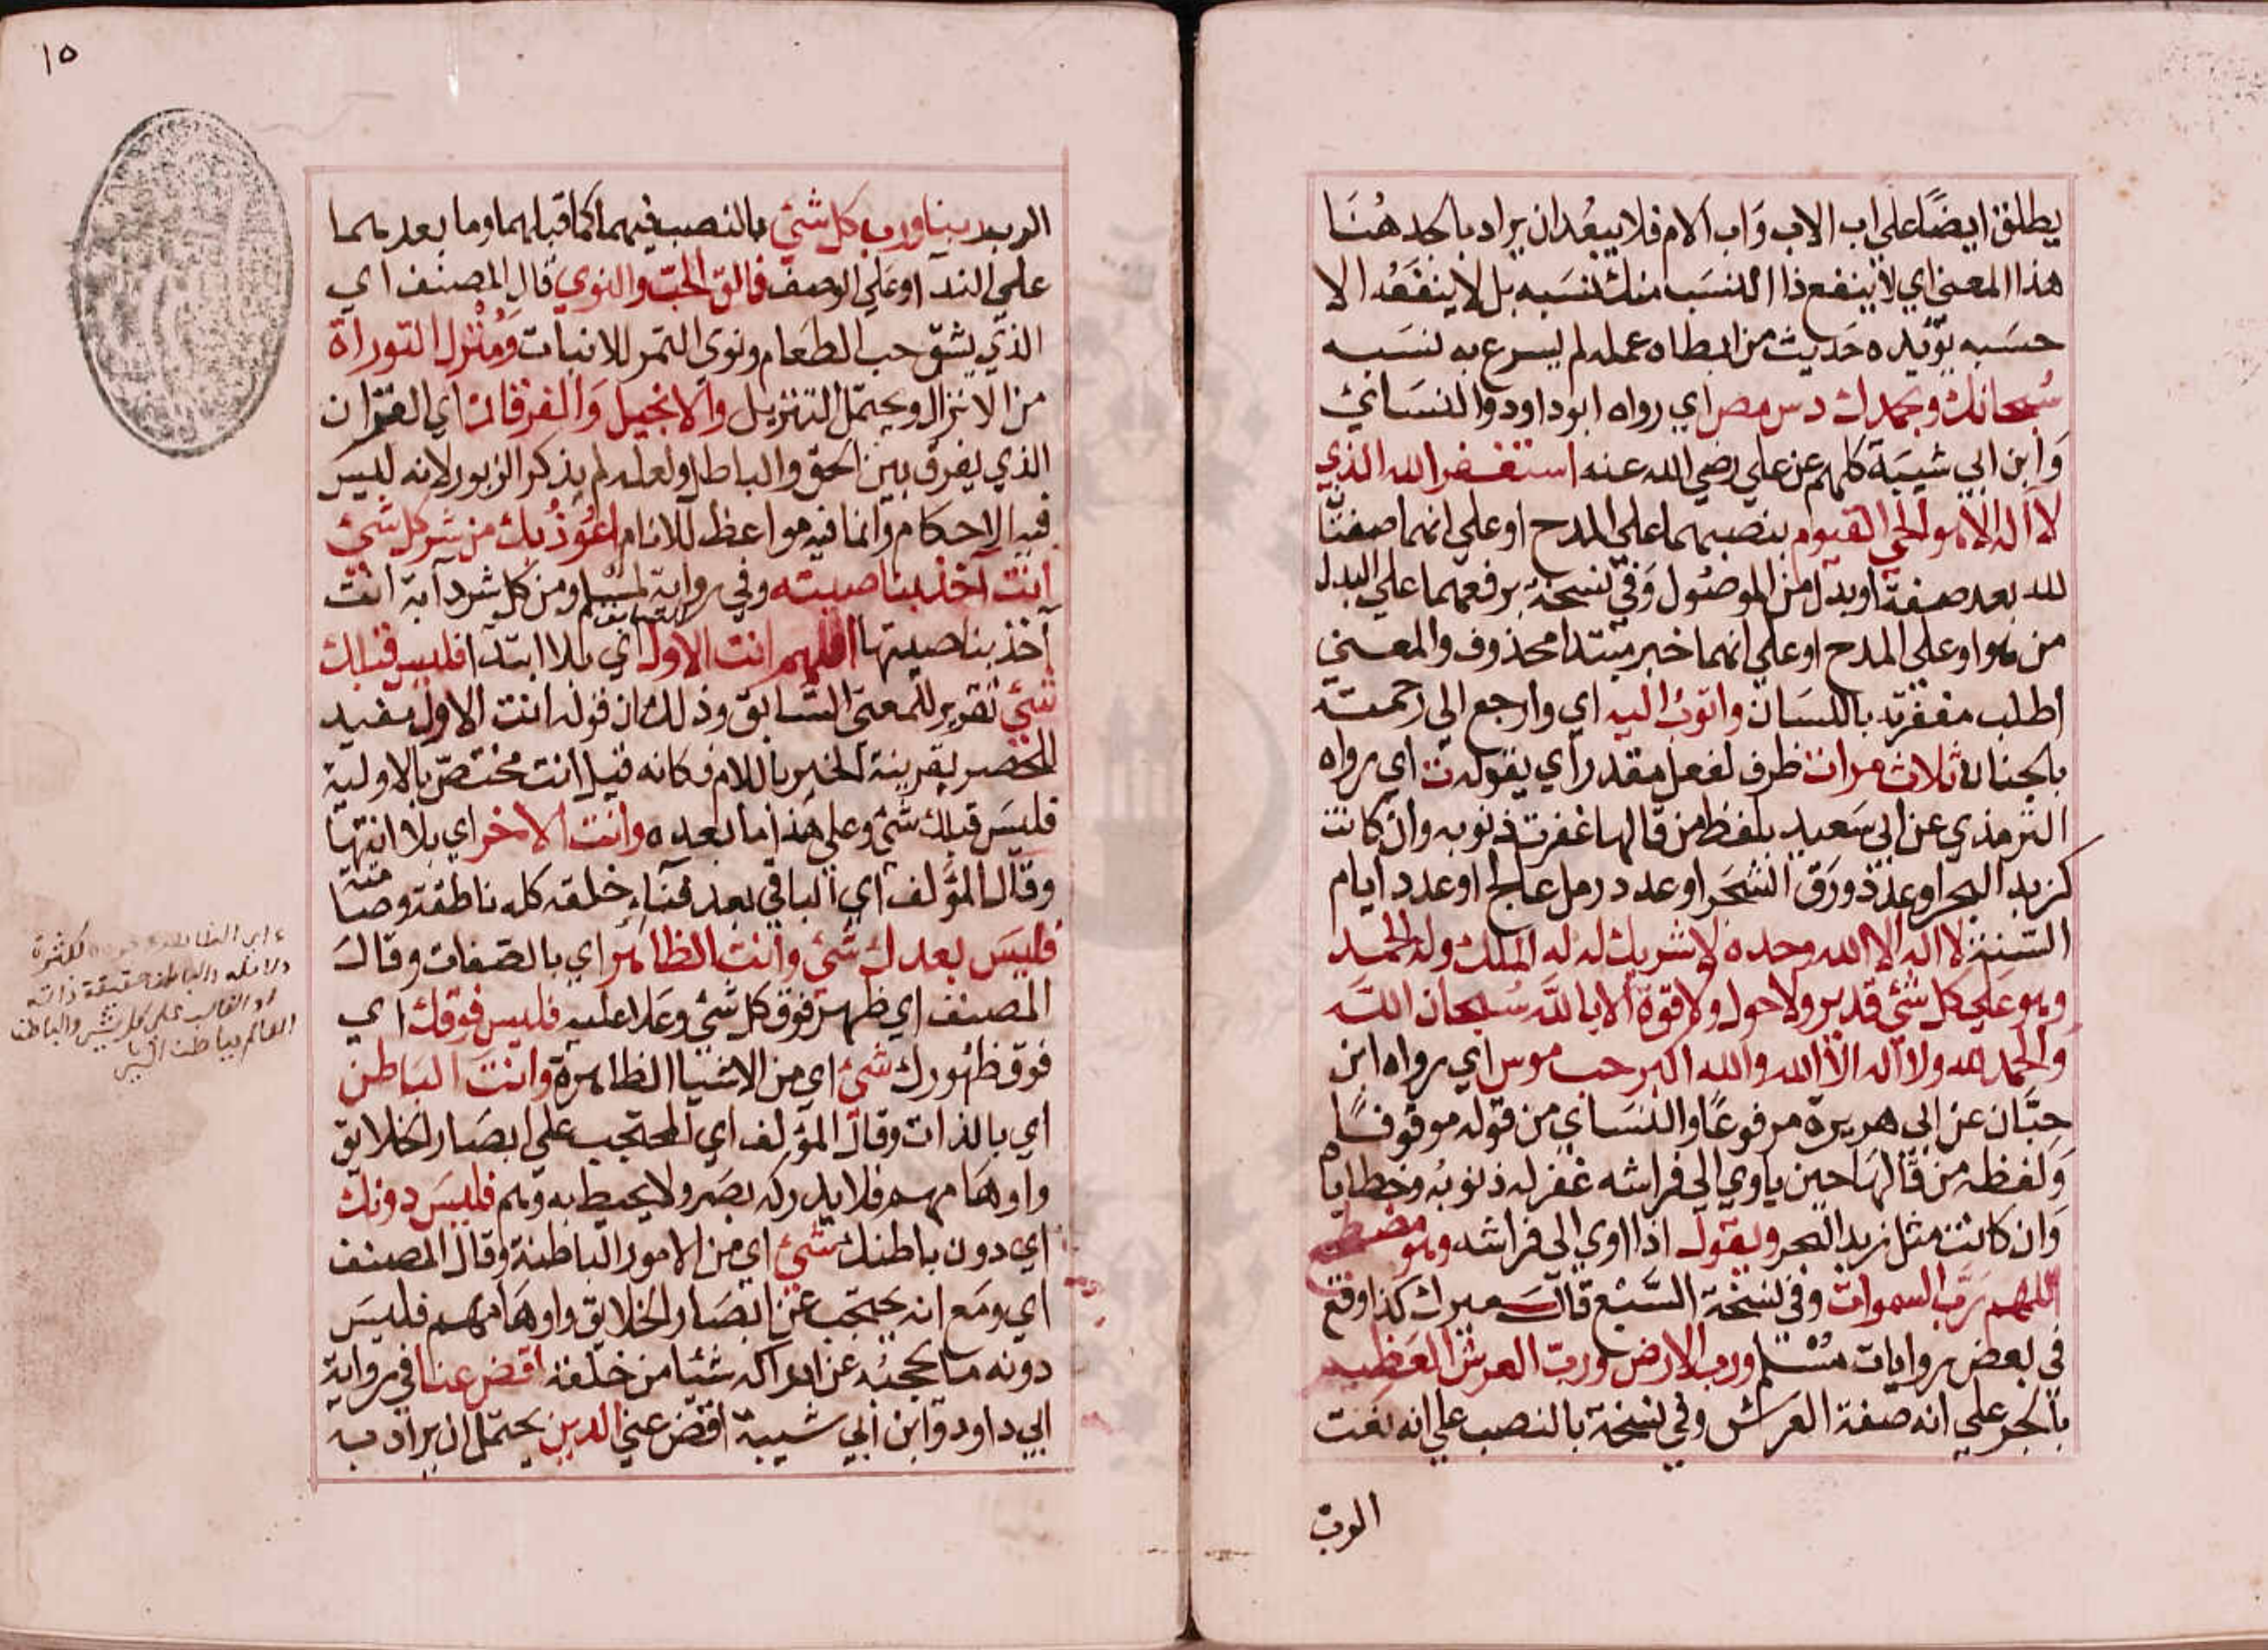 يطلق ايضًا علي اب الاب وَاب الام فلا يبعُد ان يراد بالجد هُنَا
هذا المعني اي لا ينفع ذا النسَب منك نسَبه بل لا ينفَعُه الا
حسَبه يؤيّده حَديث من ابطا ه عمله لم يسرع به نسَبه
سُبحانك وبحمدك دس مص اي رواه ابو داود والنسَائي
وَابن ابي شيبَة كلهم عن علي رضي الله عنه استغفر الله الذي
لا اله الا هو الحي القيوم بنصبهما علي المدح او علي انهما صفتَّا
لله بعد صفة او بدل من الموصُول وَفي نسخة برفعهما علي البدل
من هو او علي المدح او علي انهما خبر مبتدا محذوف والمعني
اطلب مغفرته باللسَان واتوبُ اليه اي وارجع الي رحمته
بالجنان ثلاث مرات ظرف لفعل مقدر اي يقوله ت اي رواه
الترمذي عن ابي سَعيد بلفظ من قالها غفرت ذنوبه وان كانت
كزبد البحر او عدد ورَق الشجَر او عدد رمل عالج او عدد أيام
السّنة لا اله الا الله وحده لا شريك له له الملك وله الحمد
وهو عَلي كل شئ قدير ولا حول ولا قوة الا بالله سُبحان الله
والحمد لله ولا اله الا الله والله اكبر حب مو س اي رواه ابن
حبَّان عن ابي هريرة مرفوعًا والنسَاي من قوله موقوفًا
وَلفظه من قالهَا حين ياوي الي فراشه غفر له ذنوبُه وخطاياه
وَان كانت مثل زبد البحر ويقول اذا اوي الي فراشه وهو مضطجع
اللهم رَبّ السموات وفي نسخة السَّبع قال ميرك كذا وقع
في بعض روايات مُسْلم ورب الارض ورب العرش العَظيم
بالجر علي انه صفة العرش وفي نسخة بالنصب علي انه نعت
الرب
١٥
الرب ربنا ورب كل شئ بالنصب فيهما كما قبلهما وما بعدهما
علي الندآ او علي الوصف فالق الحبّ والنوي قال المصنف اي
الذي يشق حب الطعَام ونوى التمر للانبات وَمُنْزل التوراة
من الانزال ويحتمل التنزيل والانجيل وَالفرقان اي القرآن
الذي يفرق بين الحق والباطل ولعله لم يذكر الزبور لانه ليسَ
فيه الاحكام وانما فيه مواعظ للانام اعُوذُ بك من شر كل شئ
انت آخذ بناصيته وفي رواية لمسلم ومن كل شر دآبة انت
آخذ بناصيتها اللهم انت الاول اي بلا ابتدآ فليس قبلك
شئ تقرير للمعنى السّابق وذلك ان قوله انت الاول مفيد
للحَصر بقرينة الخبر باللام فكانه قيل انت مختصّ بالاولية
فليسَ قبلك شئ وعلي هذا ما بعده وانت الاخر اي بلا انتها
وقال المؤلف اي الباقي بعد فنآءِ خلقه كله ناطقة وصامته
فليسَ بعدك شئ وانت الظاهر اي بالصفات وقال
المصنف اي ظهر فوق كل شئ وعَلا عليه فليس فوقك اي
فوق ظهورك شئ اي من الاشيا الظاهرة وانت البَاطن
اي بالذات وقال المؤلف اي المحتجب علي ابصَار الخلايق
واوهَامهم فلا يدركه بصَر ولا يحيط به وهم فليسَ دونك
اي دون باطنك شئ اي من الامور الباطنة وقال المصنف
اي ومَع انه يحتجب عن ابصَار الخلايق واوهَامهم فليسَ
دونه ما يحجبُه عن ادراكه شيئا من خلقه اقض عنا في رواية
ابي داود وابن ابي شيبة اقض عني الدين يحتمل ان يراد به
لكثرة
دلائله والباطن حقيقة ذاته
او الغالب على كل شئ والباطن
العالم بباطن